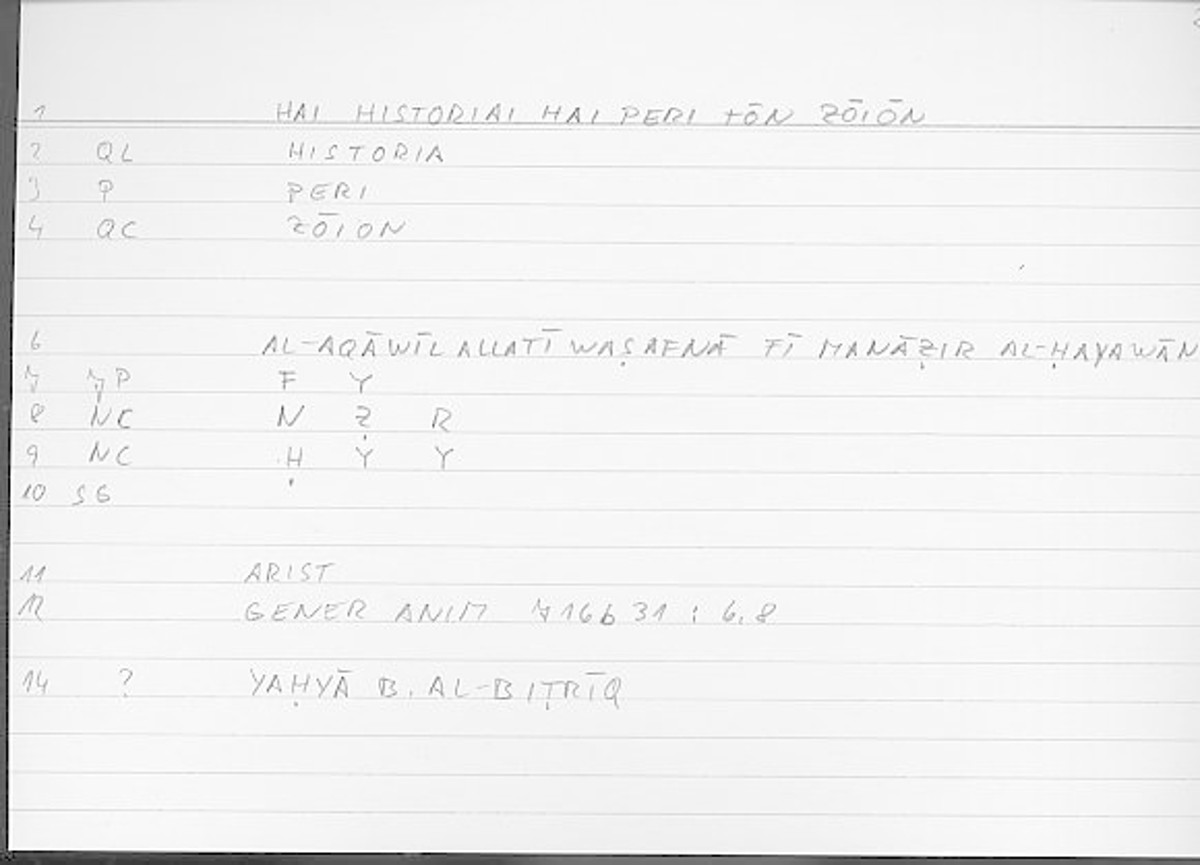 1 HAI HISTORIAI HAI PERI TŌN ZŌIŌN
2 QL HISTORIA
3 P PERI
4 QC ZŌION
6 AL-AQĀWĪL ALLATĪ WAṢAFNĀ FĪ MANĀẒIR AL-ḤAYAWĀN
7 7P F Y
8 NC N Ẓ R
9 NC Ḥ Y Y
10 SG
11 ARIST
12 GENER ANIM 716b31 : 6.8
14 ? YAḤYĀ B. AL-BIṬRĪQ